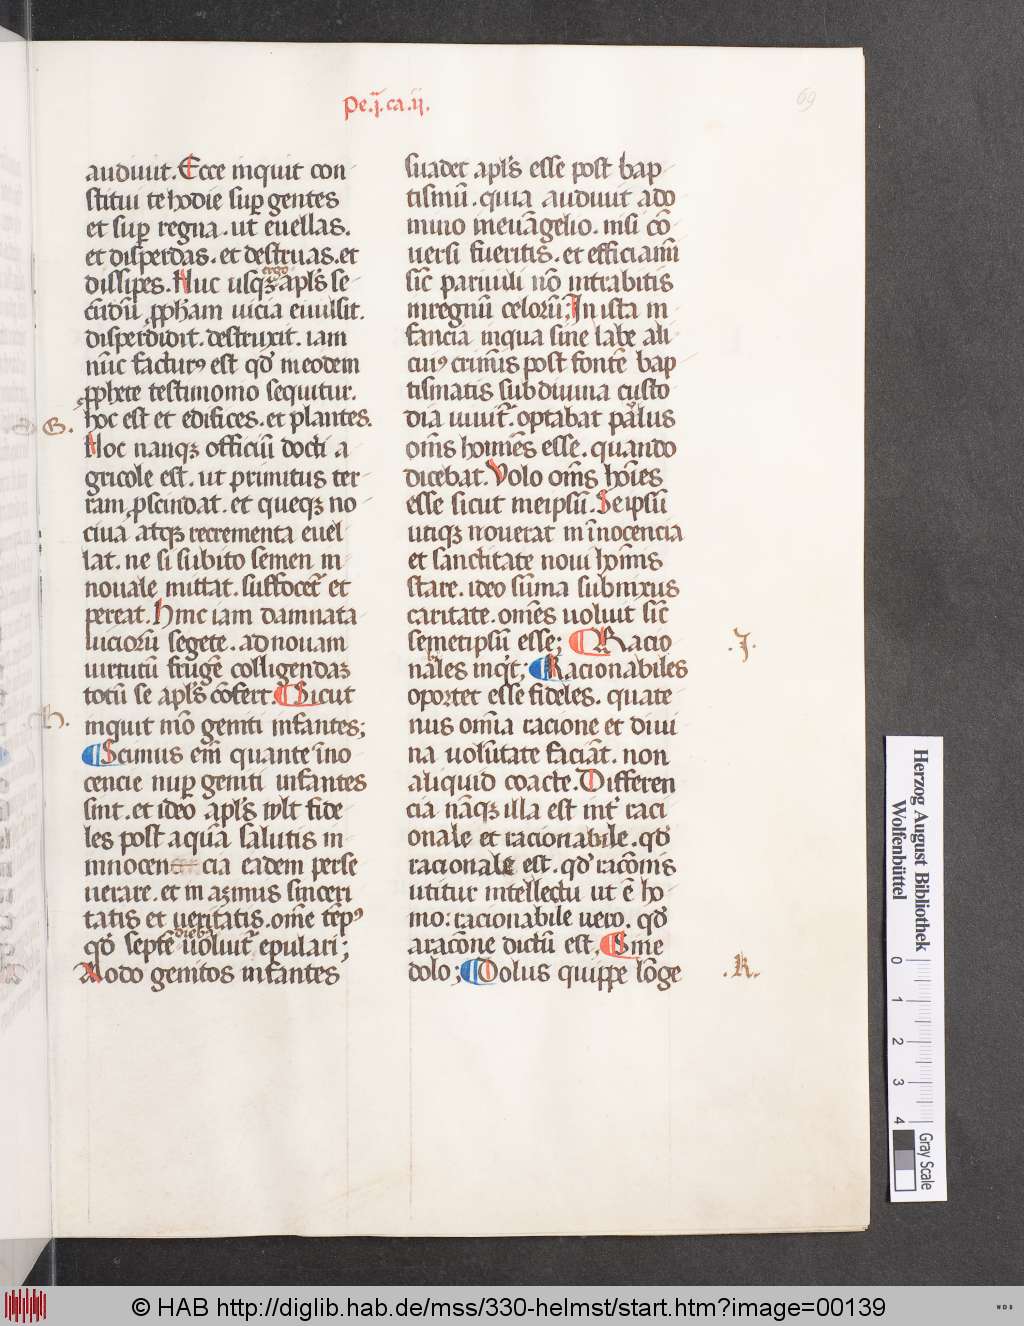 pe.ij.ca.ij.
69
audiuit. Ecce inquit con
stitui te hodie suꝑ gentes
et suꝑ regna. ut euellas.
et disperdas. et destruas. et
dissipes. Huc usqꝫ ergo apl̄s se
cūdū ꝓph̄am uicia euulsit.
disperdidit. destruxit. iam
nūc facturꝰ est qd̓ in eodem
ꝓphete testimonio sequitur.
hoc est et edifices. et plantes.
G.
Hoc nanqꝫ officiū docti a
gricole est. ut primitus ter
ram ꝓscindat. et queqꝫ no
ciua atqꝫ recrementa euel
lat. ne si subito semen in
nouale mittat. suffocet̄ et
pereat. Hinc iam damnata
uiciorū segete. ad nouam
uirtutū frugē colligendaꝫ
totū se apl̄s cōfert. ¶ Sicut
h.
inquit mō geniti infantes;
¶ Scimus em̄ quante īno
cencie nuꝑ geniti infantes
sint. et ideo apl̄s wlt fide
les post aquā salutis in
innocencia eadem perse
uerare. et in azimus sinceri
tatis et ueritatis. om̄e tēpꝰ
qd̓ septē diebꝫ uoluit̄ epulari;
Modo genitos infantes
suadet apl̄s esse post bap
tismū. quia audiuit a do
mino in euāgelio. nisi cō
uersi fueritis. et efficiamī
sic̄ paruuli nō intrabitis
in regnū celorū; In ista in
fancia inqua sine labe ali
cuiꝰ criminis post fontē bap
tismatis sub diuina custo
dia uiuit̄. optabat paulus
om̄s homīes esse. quando
dicebat. Volo om̄s hoīes
esse sicut meipsū. Seipsū
utiqꝫ nouerat in īnocencia
et sanctitate noui homīs
stare. ideo sūma subnixus
caritate. omēs uoluit sic̄
semetipsū esse; ¶ Racio
.J.
nales inqͥt; ¶ Racionabiles
oportet esse fideles. quate
nus om̄ia racione et diui
na uolūtate faciāt. non
aliquid coacte. Differen
cia nāqꝫ illa est int̄ raci
onale et racionabile. qd̓
racionale est. qd̓ racōnis
utitur intellectu ut ē ho
mo: racionabile uero. qd̓
a racōne dictū est. ¶ Sine
dolo; ¶ Dolus quippe lōge
.K.
Herzog August Bibliothek
Wolfenbüttel
0 1 2 3 4
Gray Scale
© HAB http://diglib.hab.de/mss/330-helmst/start.htm?image=00139